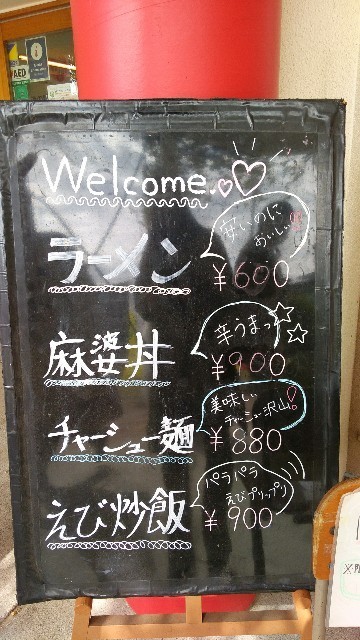 AED
Welcome
ラーメン
安いのに
おいしい!!
¥600
麻婆丼
辛うまっ
¥900
チャーシュー麺
美味しい
チャーシュー沢山!
¥880
えび炒飯
パラパラ
えびプリップリ
¥900